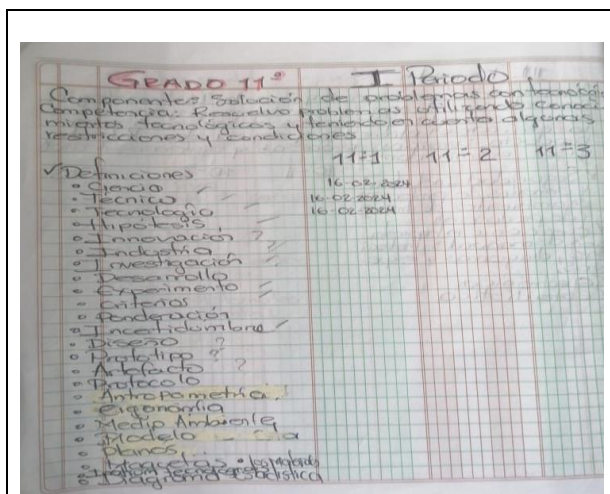 GRADO 11° I Periodo
Componente: Solución de problemas con tecnología
Competencia: Resuelvo problemas utilizando conoci
mientos tecnológicos y teniendo en cuenta algunas
restricciones y condiciones
11=1 11=2 11=3
✓ Definiciones
• Ciencia 16-02-2024
• Tecnica 16-02-2024
• Tecnología 16-02-2024
• Hipótesis
• Innovación ?
• Industria
• Investigación
• Desarrollo
• Experimento
• Criterios
• Ponderación
• Incertidumbre
• Diseño ?
• Prototipo ?
• Artefacto ?
• Protocolo
• Antropometría
• Ergonomía
• Medio Ambiente
• Modelo
• Planos
• Maquetas
• Diagrama Estadística